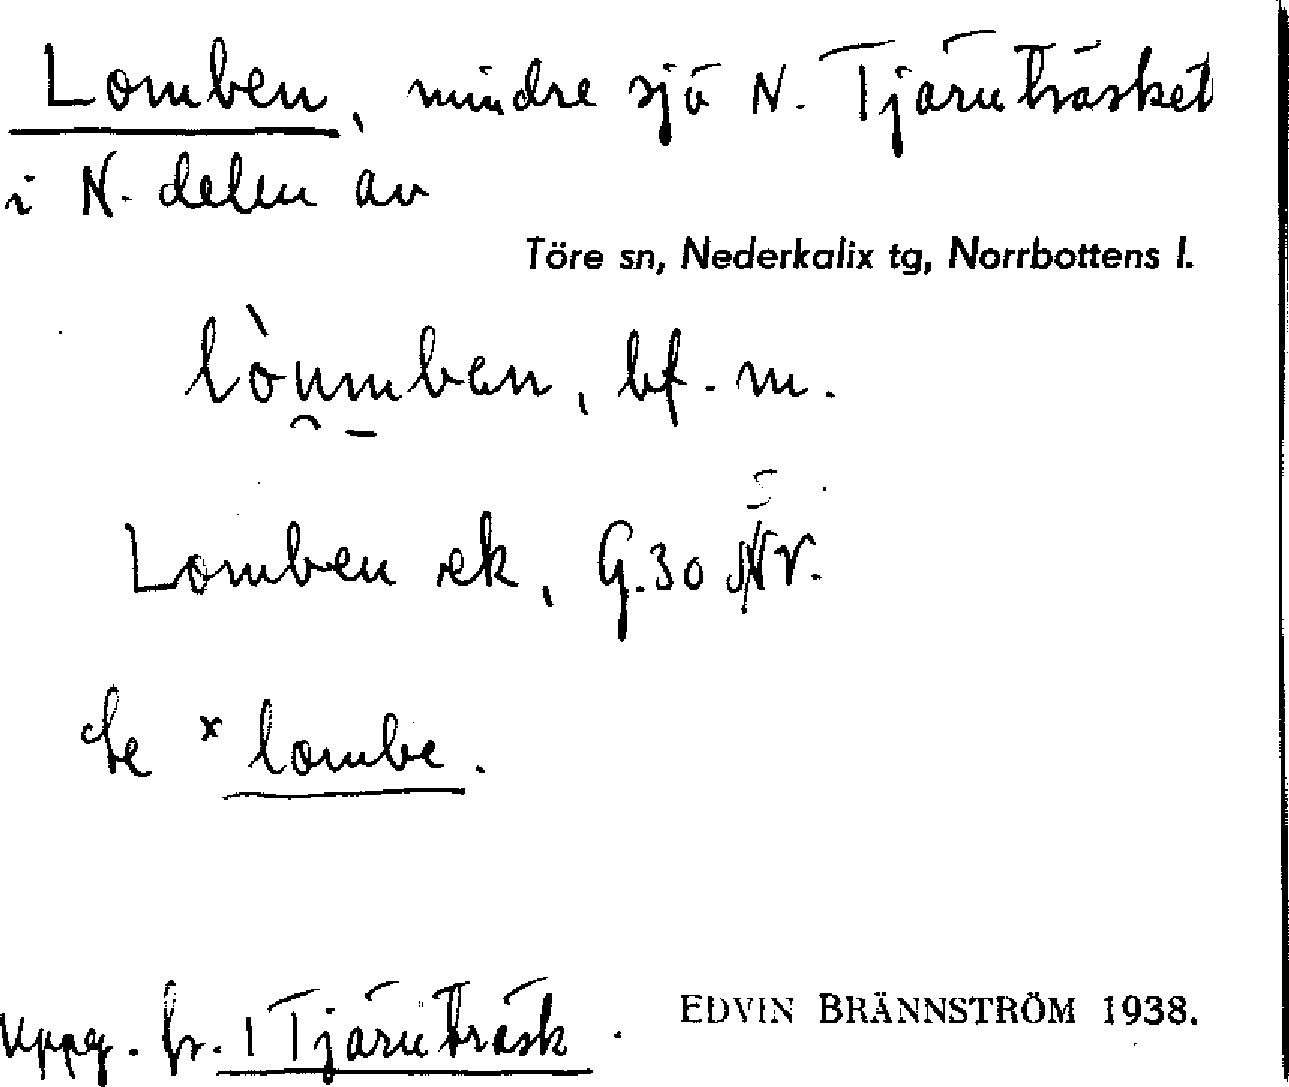 Lomben, mindre sjö N. Tjärnträsket
i N. delen av
Töre sn, Nederkalix tg, Norrbottens l.
lòumben, bf. m.
Lomben ek, G.30 SV.
Se *lombe.
Uppg. fr. 1 Tjärnträsk.
EDVIN BRÄNNSTRÖM 1938.